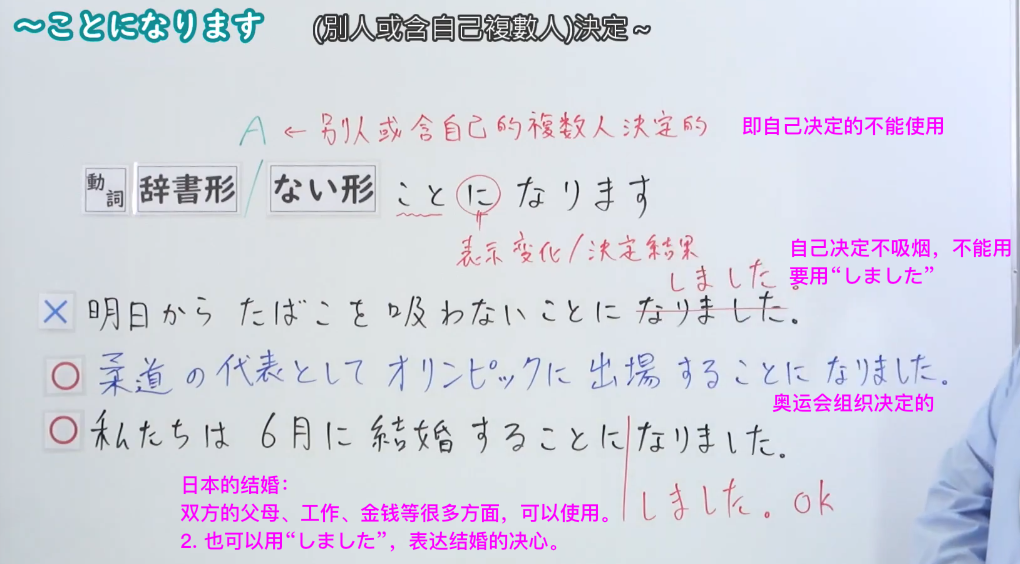 ～ことになります (別人或含自己複數人)決定～
A ← 別人或含自己的複数人決定的 即自己决定的不能使用
動詞 辞書形 / ない形 ことになります
表示変化/決定結果
自己决定不吸烟，不能用
要用“しました”
しました。
× 明日から たばこを 吸わないことに なりました。
○ 柔道の代表として オリンピックに 出場することに なりました。
奥运会组织决定的
○ 私たちは 6月に 結婚することに なりました。
しました。ok
日本的结婚：
双方的父母、工作、金钱等很多方面，可以使用。
2. 也可以用“しました”，表达结婚的决心。